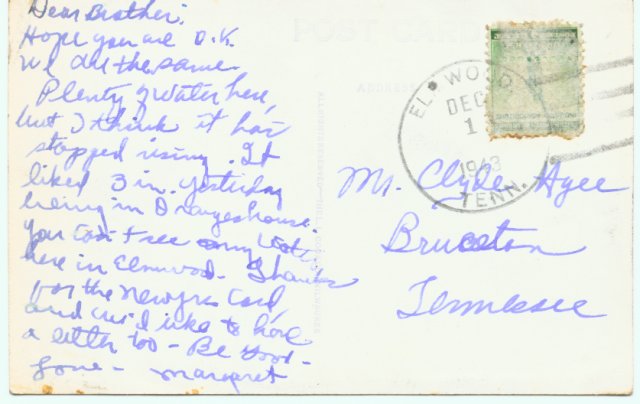 Dear Brother:
Hope you are O.K.
We are the same.
Plenty of water here,
but I think it has
stopped rising. It
liked 3 in. yesterday
being in Orange's house.
You can't see any
here in Elmwood. Thanks
for the newyrs card,
and we'd like to have
a letter too - Be good -
Love - Margaret
POST CARD
ADDRESS
ELMWOOD
DEC
1
1943
TENN.
Mr. Clyde Agee
Bruceton
Tennessee